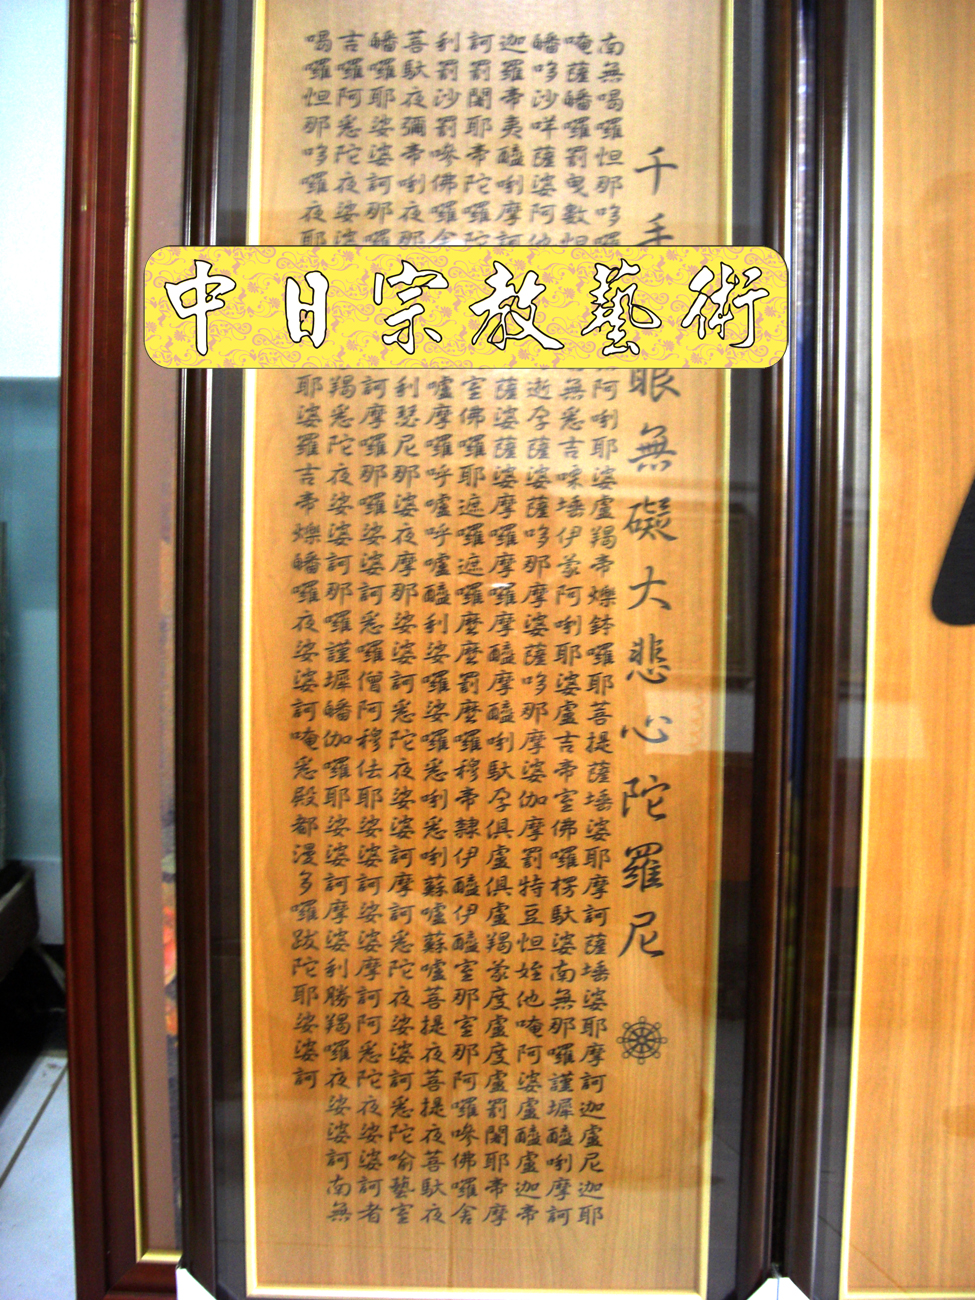 千手眼無礙大悲心陀羅尼
南無喝囉怛那哆囉阿唎耶婆盧羯帝爍鉢囉耶菩提薩埵婆耶摩訶薩埵婆耶摩訶迦盧尼迦耶
唵薩皤囉罰曳數怛無悉吉㗚埵伊蒙阿唎耶婆盧吉帝室佛囉楞馱婆南無那囉謹墀醯唎摩訶
皤哆沙咩薩婆阿他逝孕薩婆薩哆那摩婆薩哆那摩婆伽摩罰特豆怛姪他唵阿婆盧醯盧迦帝
迦羅帝夷醯唎摩訶薩婆薩婆摩囉摩囉摩醯摩醯唎馱孕俱盧俱盧羯蒙度盧度盧罰闍耶帝摩
訶罰闍耶帝陀囉陀室佛囉耶遮囉遮囉麼麼罰麼囉穆帝隸伊醯伊醯室那室那阿囉嘇佛囉舍
利罰沙罰嘇佛囉舍嚧摩囉呼嚧呼嚧醯利娑囉娑囉悉唎悉唎蘇嚧蘇嚧菩提夜菩提夜菩馱夜
菩馱夜彌帝唎夜那利瑟尼那婆夜摩那娑婆訶悉陀夜娑婆訶摩訶悉陀夜娑婆訶悉陀喻藝室
皤囉耶娑婆訶那囉訶摩囉那囉娑婆娑婆訶悉囉僧阿穆佉耶娑婆訶娑婆摩訶阿悉陀夜娑婆訶者
吉囉阿悉陀夜娑婆羯悉陀夜娑婆訶那囉謹墀皤伽囉耶娑婆訶摩婆利勝羯囉夜娑婆訶南無
喝囉怛那哆囉夜耶耶婆羅吉帝爍皤囉夜娑婆訶唵悉殿都漫多囉跋陀耶娑婆訶
中日宗教藝術